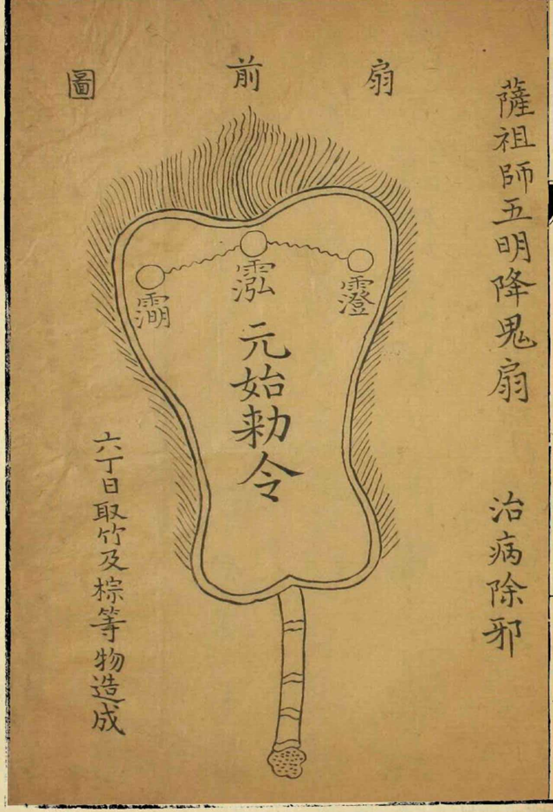 薩祖師五明降鬼扇 治病除邪
扇前圖
元始勑令
六丁日取竹及棕等物造成